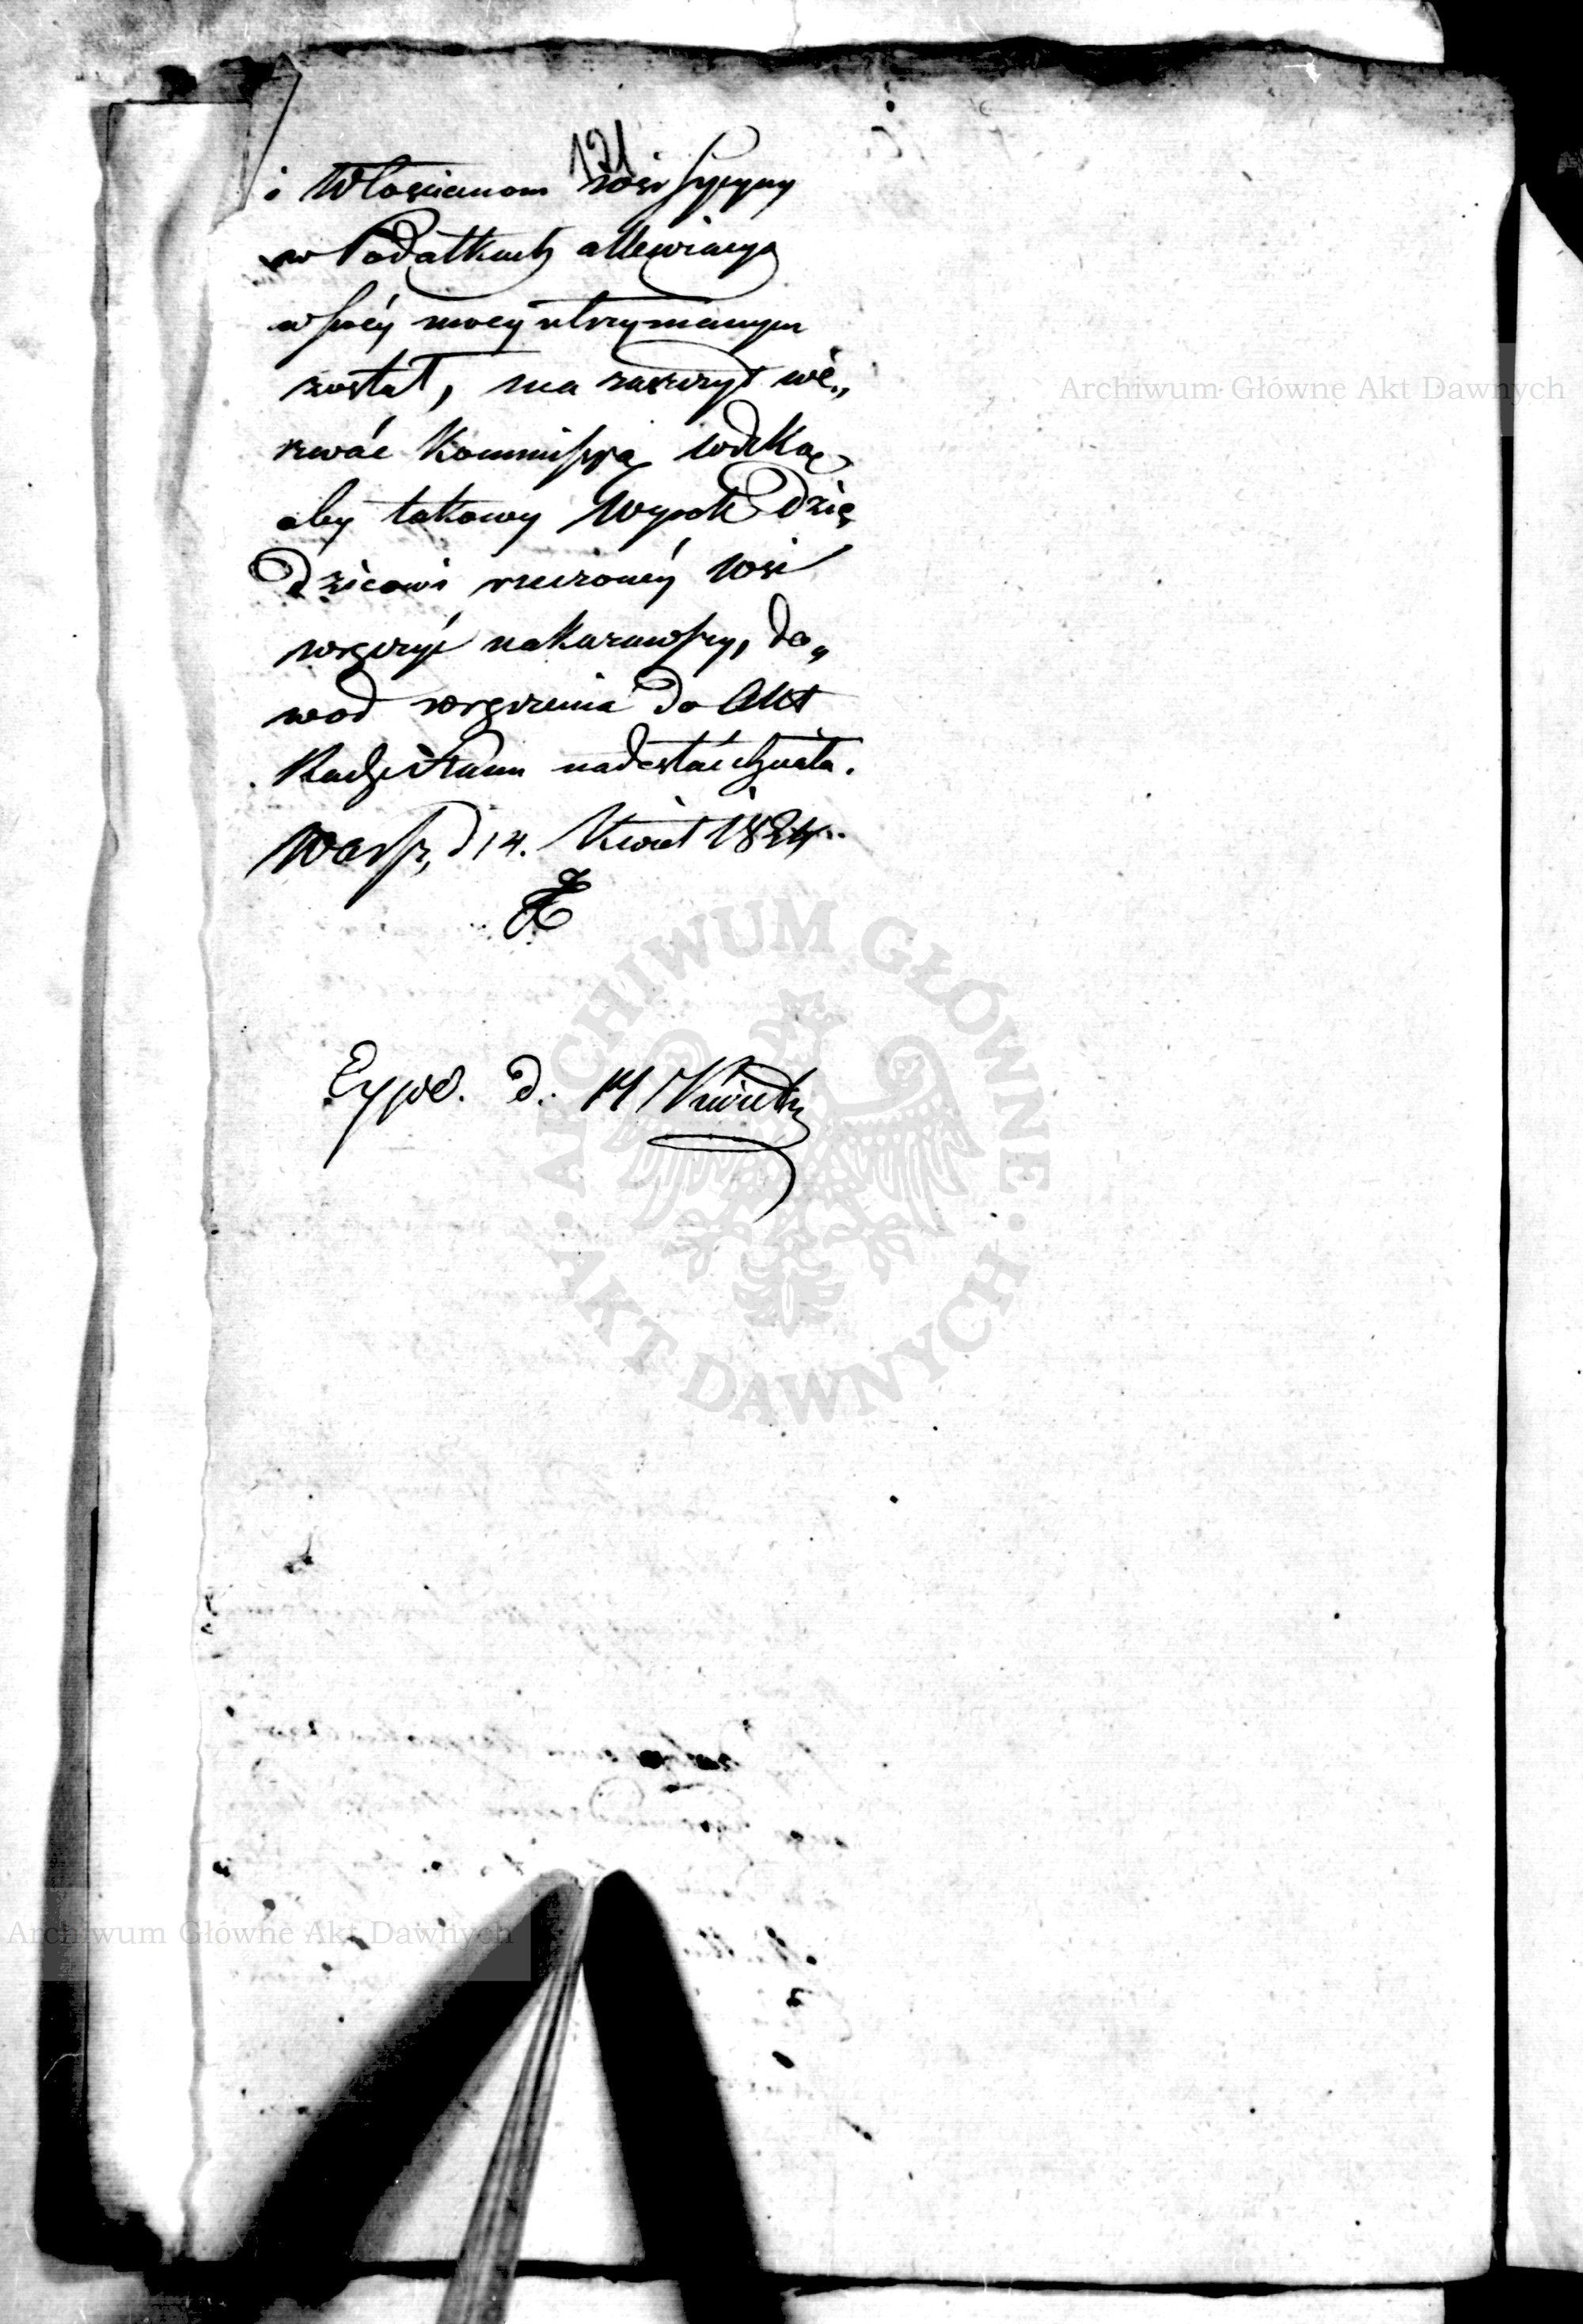 121
i Włoscianom wsi
w Podatkach allewiacya
w swéy mocy utrzymanym
został, ma zaszczyt we„
zwać Kommissyą Wdzką
aby takowy Wyrok Dzie
dzicowi rzeczonéy wsi
wręczyć nakazawszy, do„
wod wręczenia do Akt
Rady Stanu nadesłać chciała.
Warsz, d 14. Kwiet 1824
Exped. d. 14 Kwietn
Archiwum Główne Akt Dawnych
ARCHIWUM GŁÓWNE AKT DAWNYCH
Archiwum Główne Akt Dawnych